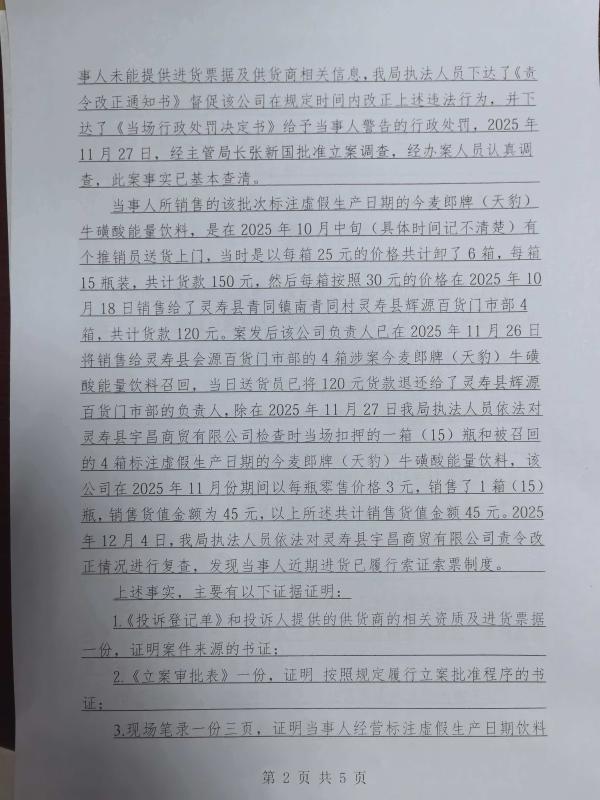 事人未能提供进货票据及供货商相关信息，我局执法人员下达了《责
令改正通知书》督促该公司在规定时间内改正上述违法行为，并下
达了《当场行政处罚决定书》给予当事人警告的行政处罚，2025年
11月27日，经主管局长张新国批准立案调查，经办案人员认真调
查，此案事实已基本查清。
当事人所销售的该批次标注虚假生产日期的今麦郎牌（天豹）
牛磺酸能量饮料，是在2025年10月中旬（具体时间记不清楚）有
个推销员送货上门，当时是以每箱25元的价格共计卸了6箱，每箱
15瓶装，共计货款150元，然后每箱按照30元的价格在2025年10
月18日销售给了灵寿县青同镇南青同村灵寿县辉源百货门市部4
箱，共计货款120元。案发后该公司负责人已在2025年11月26日
将销售给灵寿县会源百货门市部的4箱涉案今麦郎牌（天豹）牛磺
酸能量饮料召回，当日送货员已将120元货款退还给了灵寿县辉源
百货门市部的负责人，除在2025年11月27日我局执法人员依法对
灵寿县宇昌商贸有限公司检查时当场扣押的一箱（15）瓶和被召回
的4箱标注虚假生产日期的今麦郎牌（天豹）牛磺酸能量饮料，该
公司在2025年11月份期间以每瓶零售价格3元，销售了1箱（15）
瓶，销售货值金额为45元，以上所述共计销售货值金额45元。2025
年12月4日，我局执法人员依法对灵寿县宇昌商贸有限公司责令改
正情况进行复查，发现当事人近期进货已履行索证索票制度。
上述事实，主要有以下证据证明：
1.《投诉登记单》和投诉人提供的供货商的相关资质及进货票据
一份，证明案件来源的书证；
2.《立案审批表》一份，证明 按照规定履行立案批准程序的书
证；
3.现场笔录一份三页，证明当事人经营标注虚假生产日期饮料
第 2 页 共 5 页